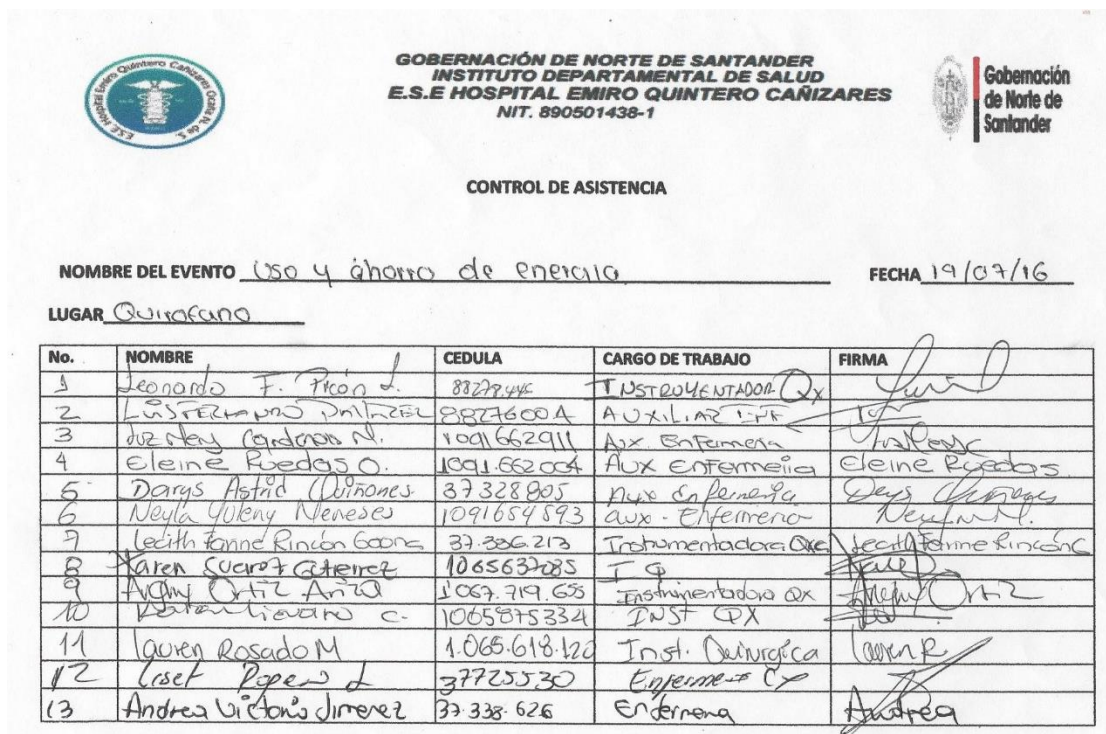 GOBERNACIÓN DE NORTE DE SANTANDER
INSTITUTO DEPARTAMENTAL DE SALUD
E.S.E HOSPITAL EMIRO QUINTERO CAÑIZARES
NIT. 890501438-1
Gobernación
de Norte de
Santander
CONTROL DE ASISTENCIA
NOMBRE DEL EVENTO Uso y ahorro de energia FECHA 19/07/16
LUGAR Quirofano
No. NOMBRE CEDULA CARGO DE TRABAJO FIRMA
1 Leonardo F. Picón L. INSTRUMENTADOR Qx
2 88276004 AUXILIAR ENF
3 Luz Neny Cardenas N. 1091662911 Aux. Enfermera
4 Eleine Ruedas O. 1091.662004 Aux Enfermeria Eleine Ruedas
5 Darys Astrid Quiñones 37328805 Aux Enfermeria
6 Neyla Yuleny Meneses 1091654593 aux - Enfermeria
7 Lecith Fanine Rincón 37.336.213 Instrumentadora Lecith Fanine Rincón
8 Karen Suarez Gutierrez 1065637085 I Q
9 Argny Ortiz Ariza 1'067.719.655 Instrumentadora Qx Ortiz
10 C. 1065875334 INST QX
11 Lauren Rosado M 1.065.618.120 Inst. Quirurgica Lauren R
12 Liset Ropero L 37725530
13 Andrea Victoria Jimenez 37.338.626 Enfermera Andrea